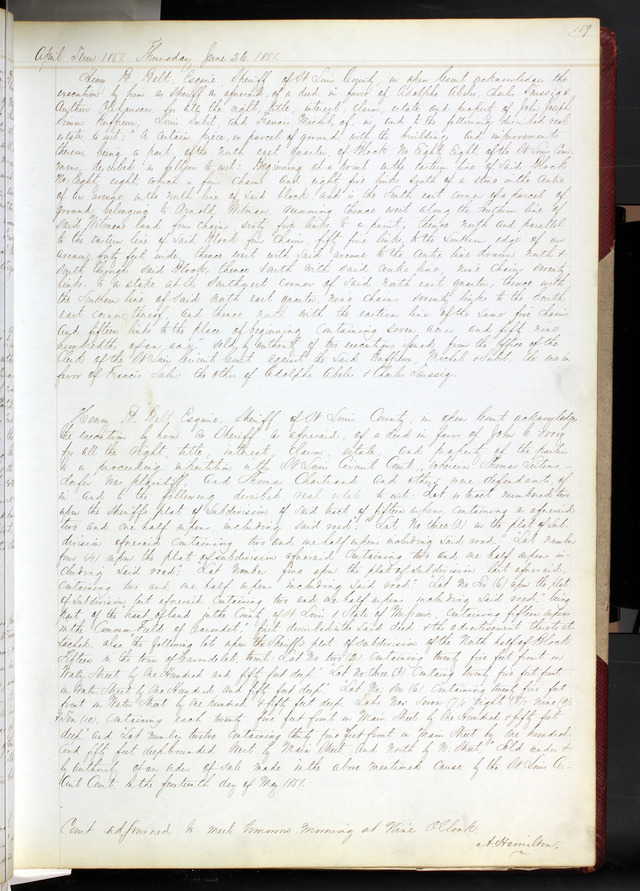 159
April Term 1851. Thursday June 26. 1851.
Henry B. Belt, Esquire Sheriff of St Louis County, in open Court acknowledges the
execution by him as Sheriff as aforesaid, of a deed in favor of Adolphe Abeles, Charles Taussig &
Arthur for all the right, title, interest, claim, estate and property of John Joseph
Louis and Francis Michel, of, in, and to the following described real
estate to wit: "A certain piece or parcel of ground with the buildings and improvements
thereon being a part of the north east quarter of Block No Eighty Eight of the St Louis Com-
mons, described as follows to wit: Beginning at a point in the eastern line of said Block
No Eighty eight, which is four chains and eighty five links South of a stone in the centre
of an avenue in the north line of said block, and is the South east corner of a parcel of
ground belonging to Arnold running thence west along the southern line of
said land four chains, sixty five links to a point, thence north and parallel
to the eastern line of said Block four chains, fifty five links to the Southern edge of an
avenue forty feet wide, thence west with said avenue to the centre line drawn north &
South through said Block, thence South with said centre line, nine chains seventy
links to a stake at the Southwest corner of said north east quarter, thence with
the Southern line of said north east quarter, nine chains seventy links to the South
east corner thereof, and thence north with the eastern line of the same five chains
and fifteen links to the place of beginning, containing seven acres and fifty nine
hundredths of an acre;" sold by authority of two executions issued from the office of the
Clerk of the St Louis Circuit Court against the said Michel & the one in
favor of Francis the other of Adolphe Abeles & Charles Taussig.
Henry B. Belt, Esquire, Sheriff of St Louis County, in open Court acknowledges
the execution by him as Sheriff as aforesaid, of a deed in favor of John C. Ivory
for all the right, title, interest, claim, estate, and property of the parties
to a proceeding in partition in the St Louis Circuit Court, wherein Thomas
was plaintiff, and Thomas Chartrand and others were defendants of
in and to the following described real estate to wit: Lot or tract numbered two
upon the Sheriffs plat of Subdivision of said tract of fifteen arpens containing as aforesaid
two and one half arpens including said road; Lot No three (3) on the plat of Sub-
division aforesaid containing two and one half arpens including said road," Lot number
four (4) upon the plat of subdivision aforesaid containing two and one half arpens in-
cluding said road." Lot number five upon the plat of Subdivision last aforesaid,
containing two and one half arpens including said road." Lot No Six (6) upon the plat
of Subdivision last aforesaid containing two and one half arpens including said road" being
part of the tract of land in the County of St Louis & State of Missouri, containing fifteen arpens
in the Common Field of Carondelet," first described in the said deed & the advertisement thereto at-
tached. also the following lots upon the Sheriffs plat of subdivision of the North half of Block
Fifteen in the town of Carondelet, to wit: Lot No two (2) containing twenty five feet front on
Water Street by One Hundred and fifty feet deep." Lot No three (3) Containing twenty five feet front
on Water Street by One Hundred and fifty feet deep. Lot No Six (6) containing twenty five feet
front on Water Street by one hundred & fifty feet deep. Lots Nos Seven (7) Eight (8) Nine (9) &
Ten (10), containing each twenty five feet front on Main Street by One Hundred & fifty feet
deep" and Lot number twelve containing thirty five feet front on Main Street by One hundred
and fifty feet deep bounded West by Main Street, and North by Street" Sold under &
by authority of an order of Sale made in the above mentioned cause by the St Louis Cir-
cuit Court, on the fourteenth day of May 1851.
Court adjourned to meet tomorrow morning at Nine OClock.
A. Hamilton.